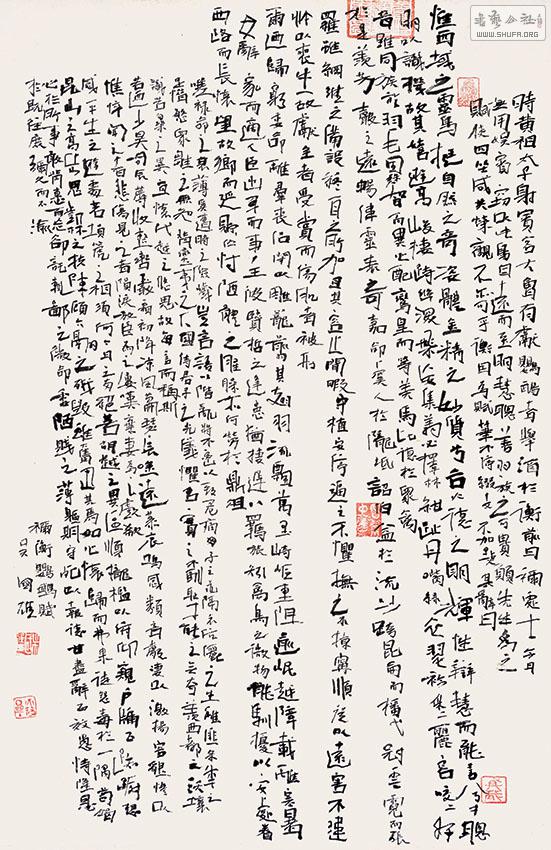 時黄祖太子射賓客大會有獻鸚鵡者舉酒於衡前曰禰處士今日
無用娛賓竊以此鳥自遠而至明慧聰善羽族之可貴願先生為之
賦使四坐咸共榮觀不亦可乎衡因為賦筆不停綴文不加點其辭曰
惟西域之靈鳥挺自然之奇姿體金精之妙質兮合火德之明輝性辯慧而能言兮才聰
明以識機故其嬉遊高峻棲跱幽深飛不妄集翔必擇林紺趾丹嘴綠衣翠衿采二麗容咬二好
音雖同族於羽毛固殊智而異心配鸞皇而等美焉比德於衆禽
於是羨芳聲之遠暢偉靈表之可嘉命虞人於隴坻詔伯益於流沙跨崑崙而播弋冠雲霓而張
羅雖綱維之備設終一目之所加且其容止閑暇守植安停逼之不懼撫之不驚寧順從以遠害不違
忤以喪生故獻全者受賞而傷肌者被刑
爾迺歸窮委命離羣喪侶閉以雕籠翦其翅羽流飄萬里崎嶇重阻踰岷越障載罹寒暑
女辭家而適人臣出身而事主彼賢哲之逢患猶棲遲以羈旅矧禽鳥之微物能馴擾以安處眷
西路而長懷望故鄉而延佇忖陋體之腥臊亦何勞於鼎俎
嗟祿命之衰薄奚遭時之險巇豈言語以階亂將不密以致危痛母子之永隔哀伉儷之生離匪余年之
足惜愍衆雛之無知背蠻夷之下國侍君子之光儀懼名實之不副恥才能之無奇羨西都之沃壤
識苦樂之異宜懷代越之悠思故每言而稱斯
若迺少昊司辰蓐收整轡嚴霜初降涼風蕭瑟長吟遠慕哀鳴感類音聲悽以激揚容貌慘以
憔悴聞之者悲傷見之者隕淚放臣為之屢歎棄妻為之歔欷
感平生之遊處若壎篪之相須何今日之兩絕若胡越之異區順籠檻以俯仰闚戶牖以踟躕想
崑山之高嶽思鄧林之扶疎顧六翮之殘毀雖奮迅其焉如心懷歸而弗果徒怨毒於一隅苟竭
心於所事敢背惠而忘初託輕鄙之微命委陋賤之薄軀期守死以報德甘盡辭以效愚恃隆恩
於既往庶彌久而不渝
禰衡鸚鵡賦
書藝公社
WWW.SHUFA.ORG